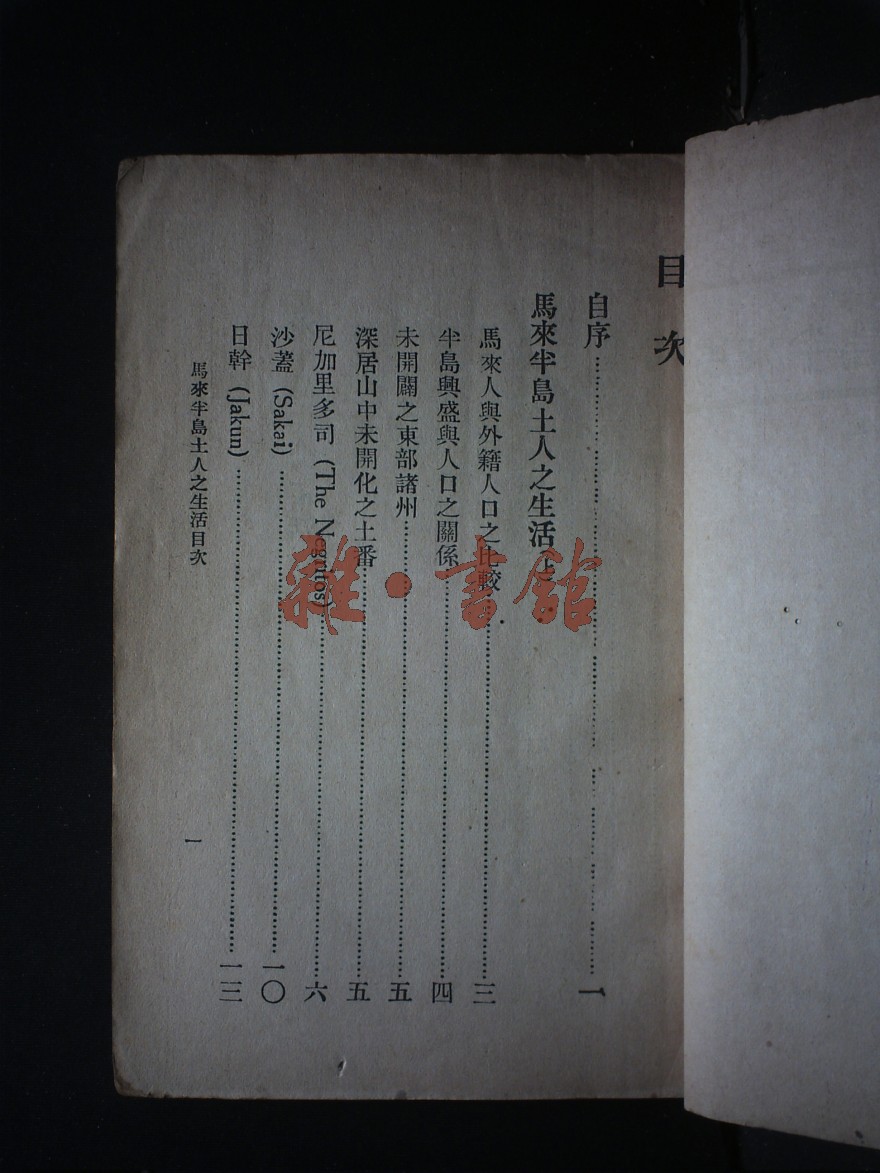 目次
自序……一
馬來半島土人之生活（上）
馬來人與外籍人口之比較……三
半島興盛與人口之關係……四
未開闢之東部諸州……五
深居山中未開化之土番……五
尼加里多司 (The Negritos)……六
沙蓋 (Sakai)……一〇
日幹 (Jakun)……一三
馬來半島土人之生活目次
一
雜·書館